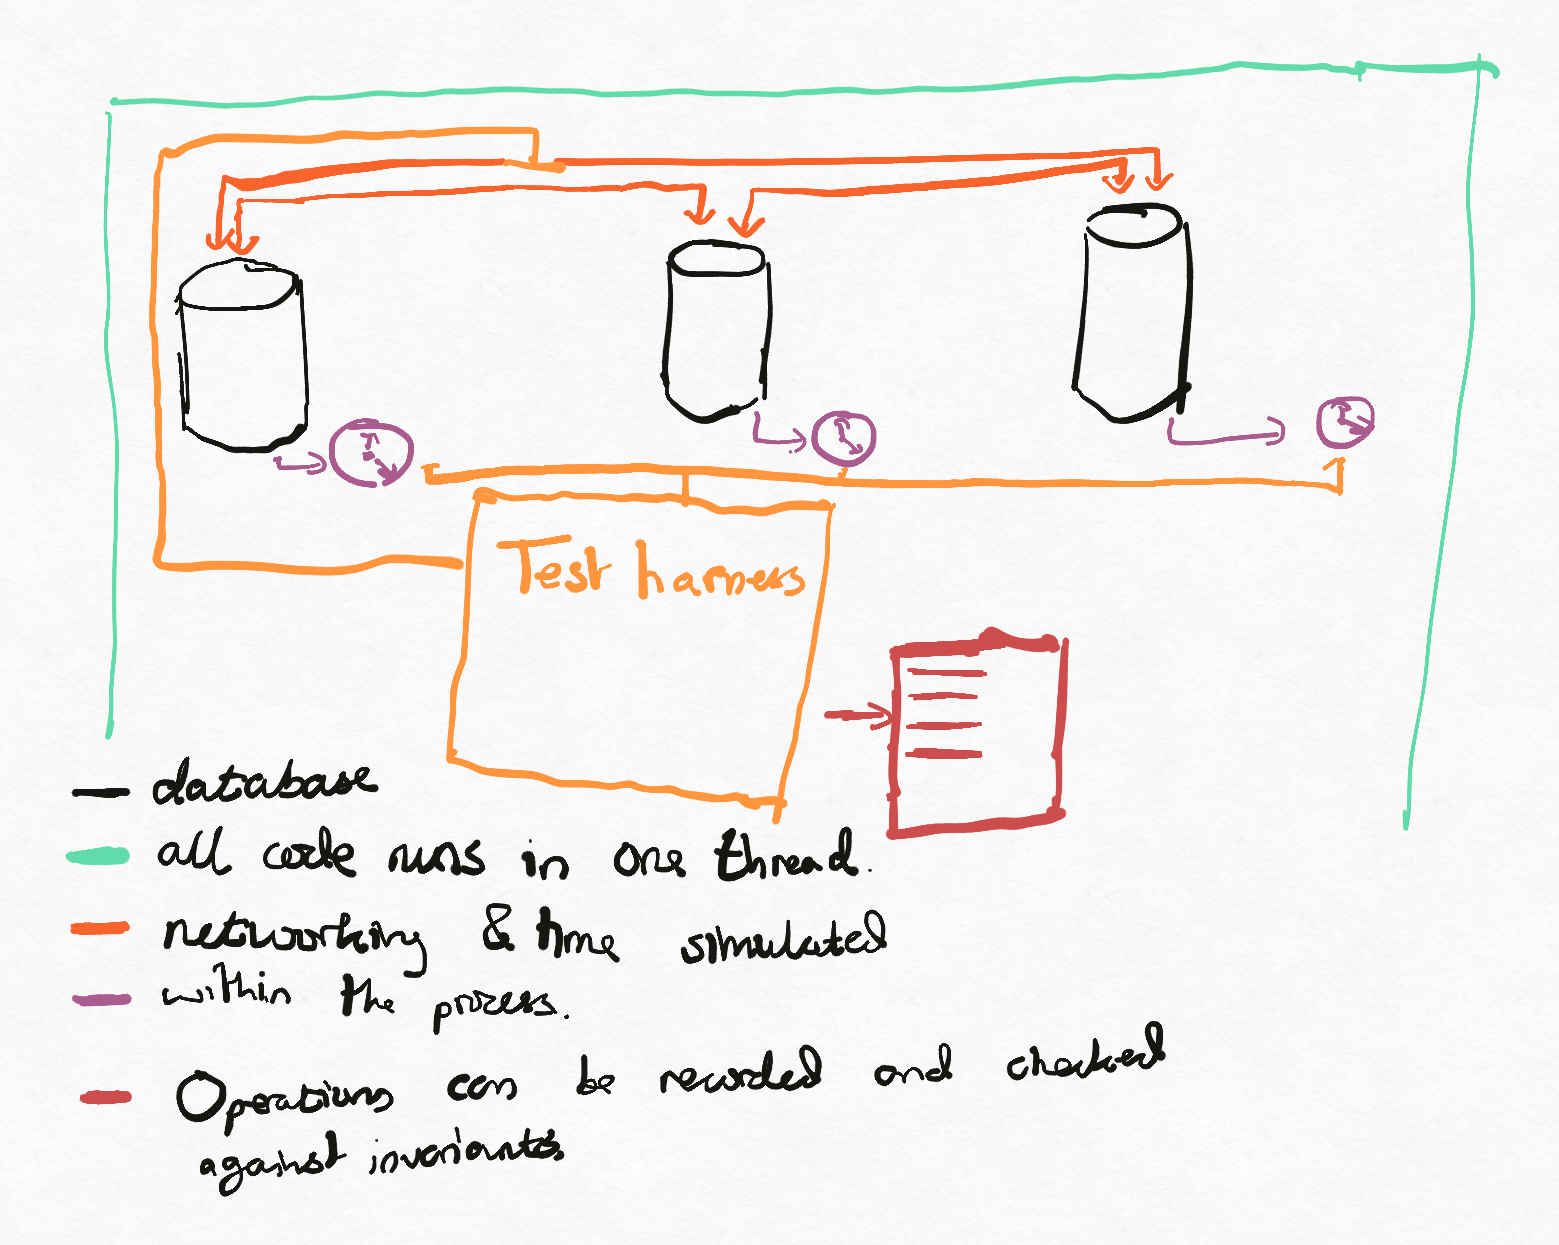 Test harness
database
all code runs in one thread.
networking & time simulated
within the process.
Operations can be recorded and checked
against invariants